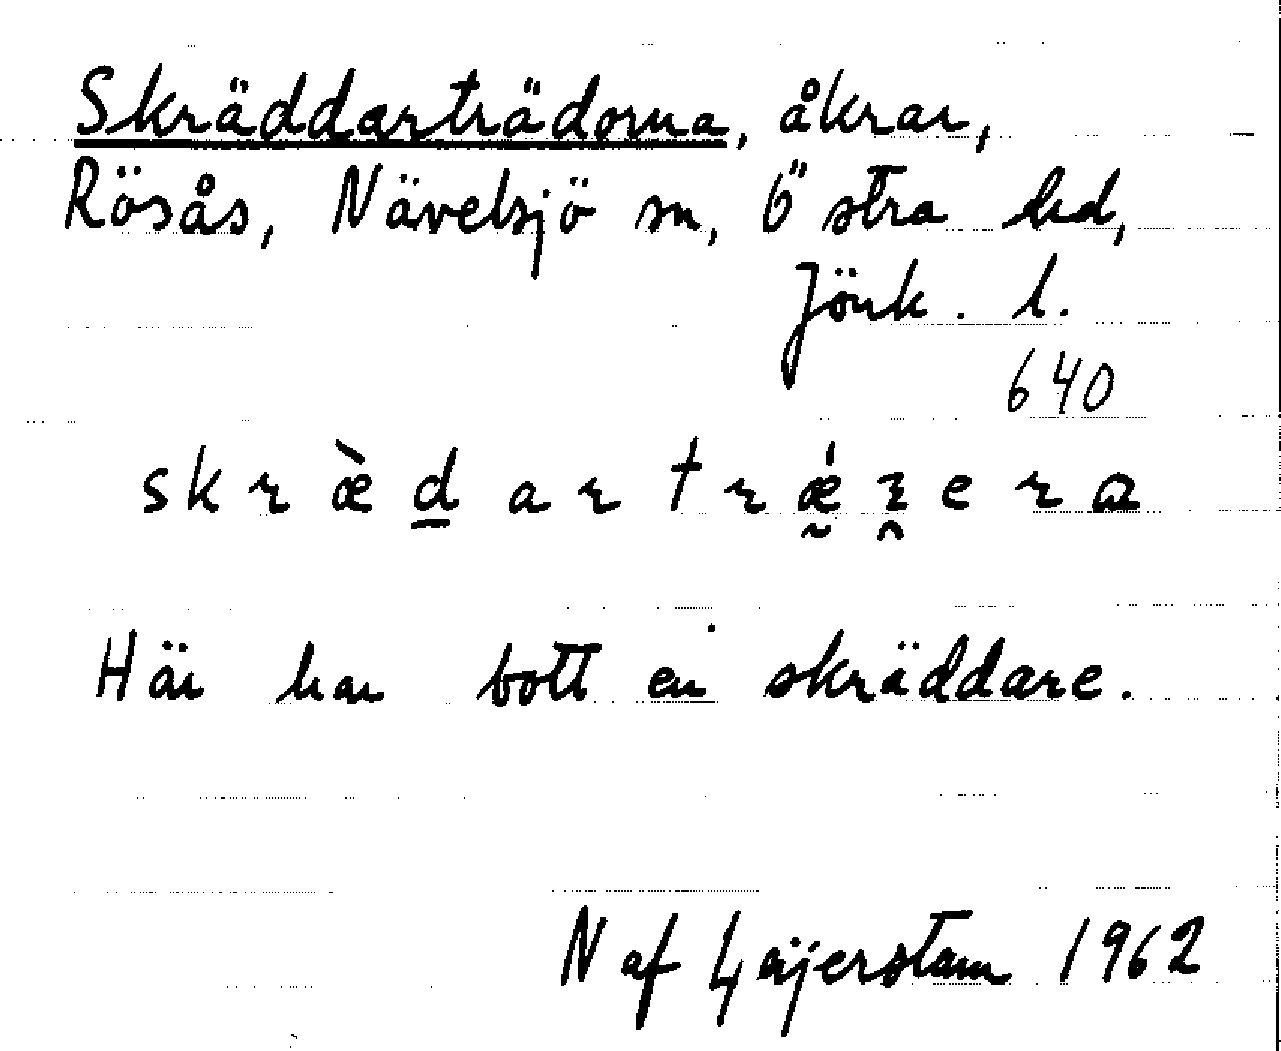 Skräddarträdorna, åkrar,
Rösås, Nävelsjö sn, Östra hd,
Jönk. l.
640
skræ̀d̲artrǽ̰ꝛ̯era
Här har bott en skräddare.
N af Geijerstam 1962